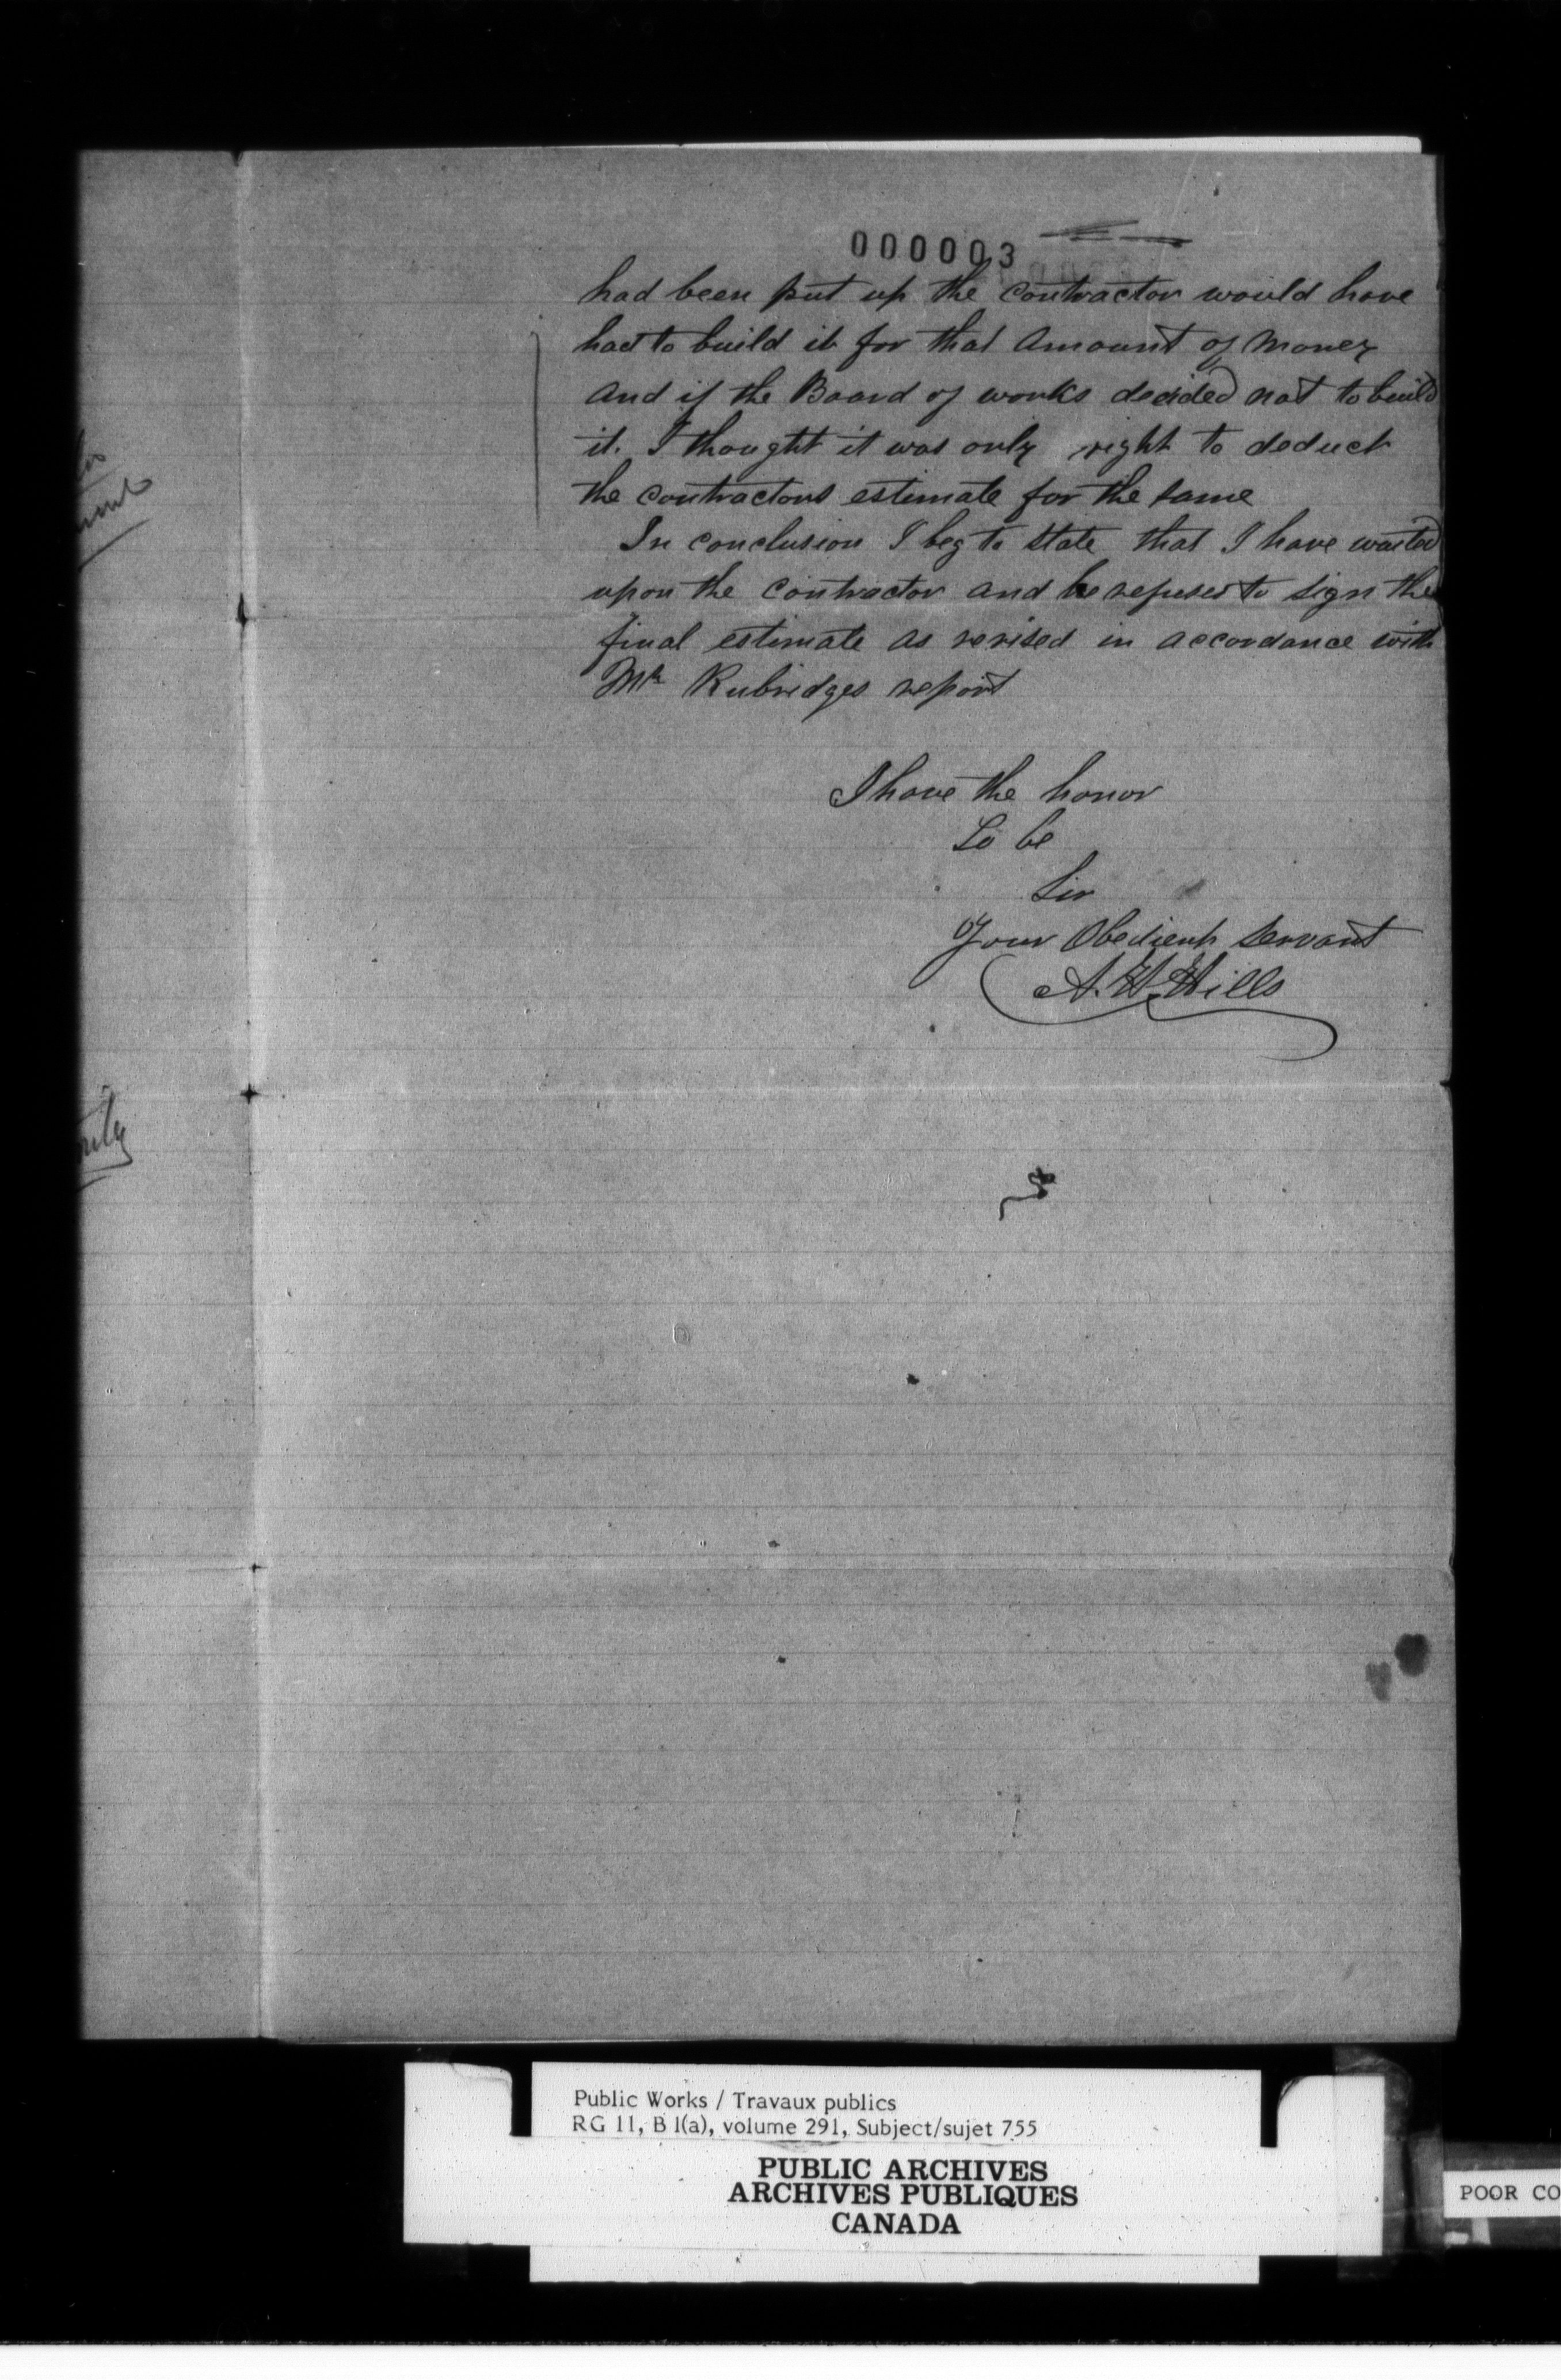 000003
had been put up the contractor would have
had to build it for that Amount of Money
And if the Board of works decided not to build
it. I thought it was only right to deduct
the contractors estimate for the same
In conclusion I beg to state that I have waited
upon the contractor and he refuses to sign the
final estimate as revised in accordance with
Mr Rubridges report
I have the honor
To be
Sir
Your Obedient Servant
A. W. Hills
Public Works / Travaux publics
RG 11, B 1(a), volume 291, Subject/sujet 755
PUBLIC ARCHIVES
ARCHIVES PUBLIQUES
CANADA
POOR CO